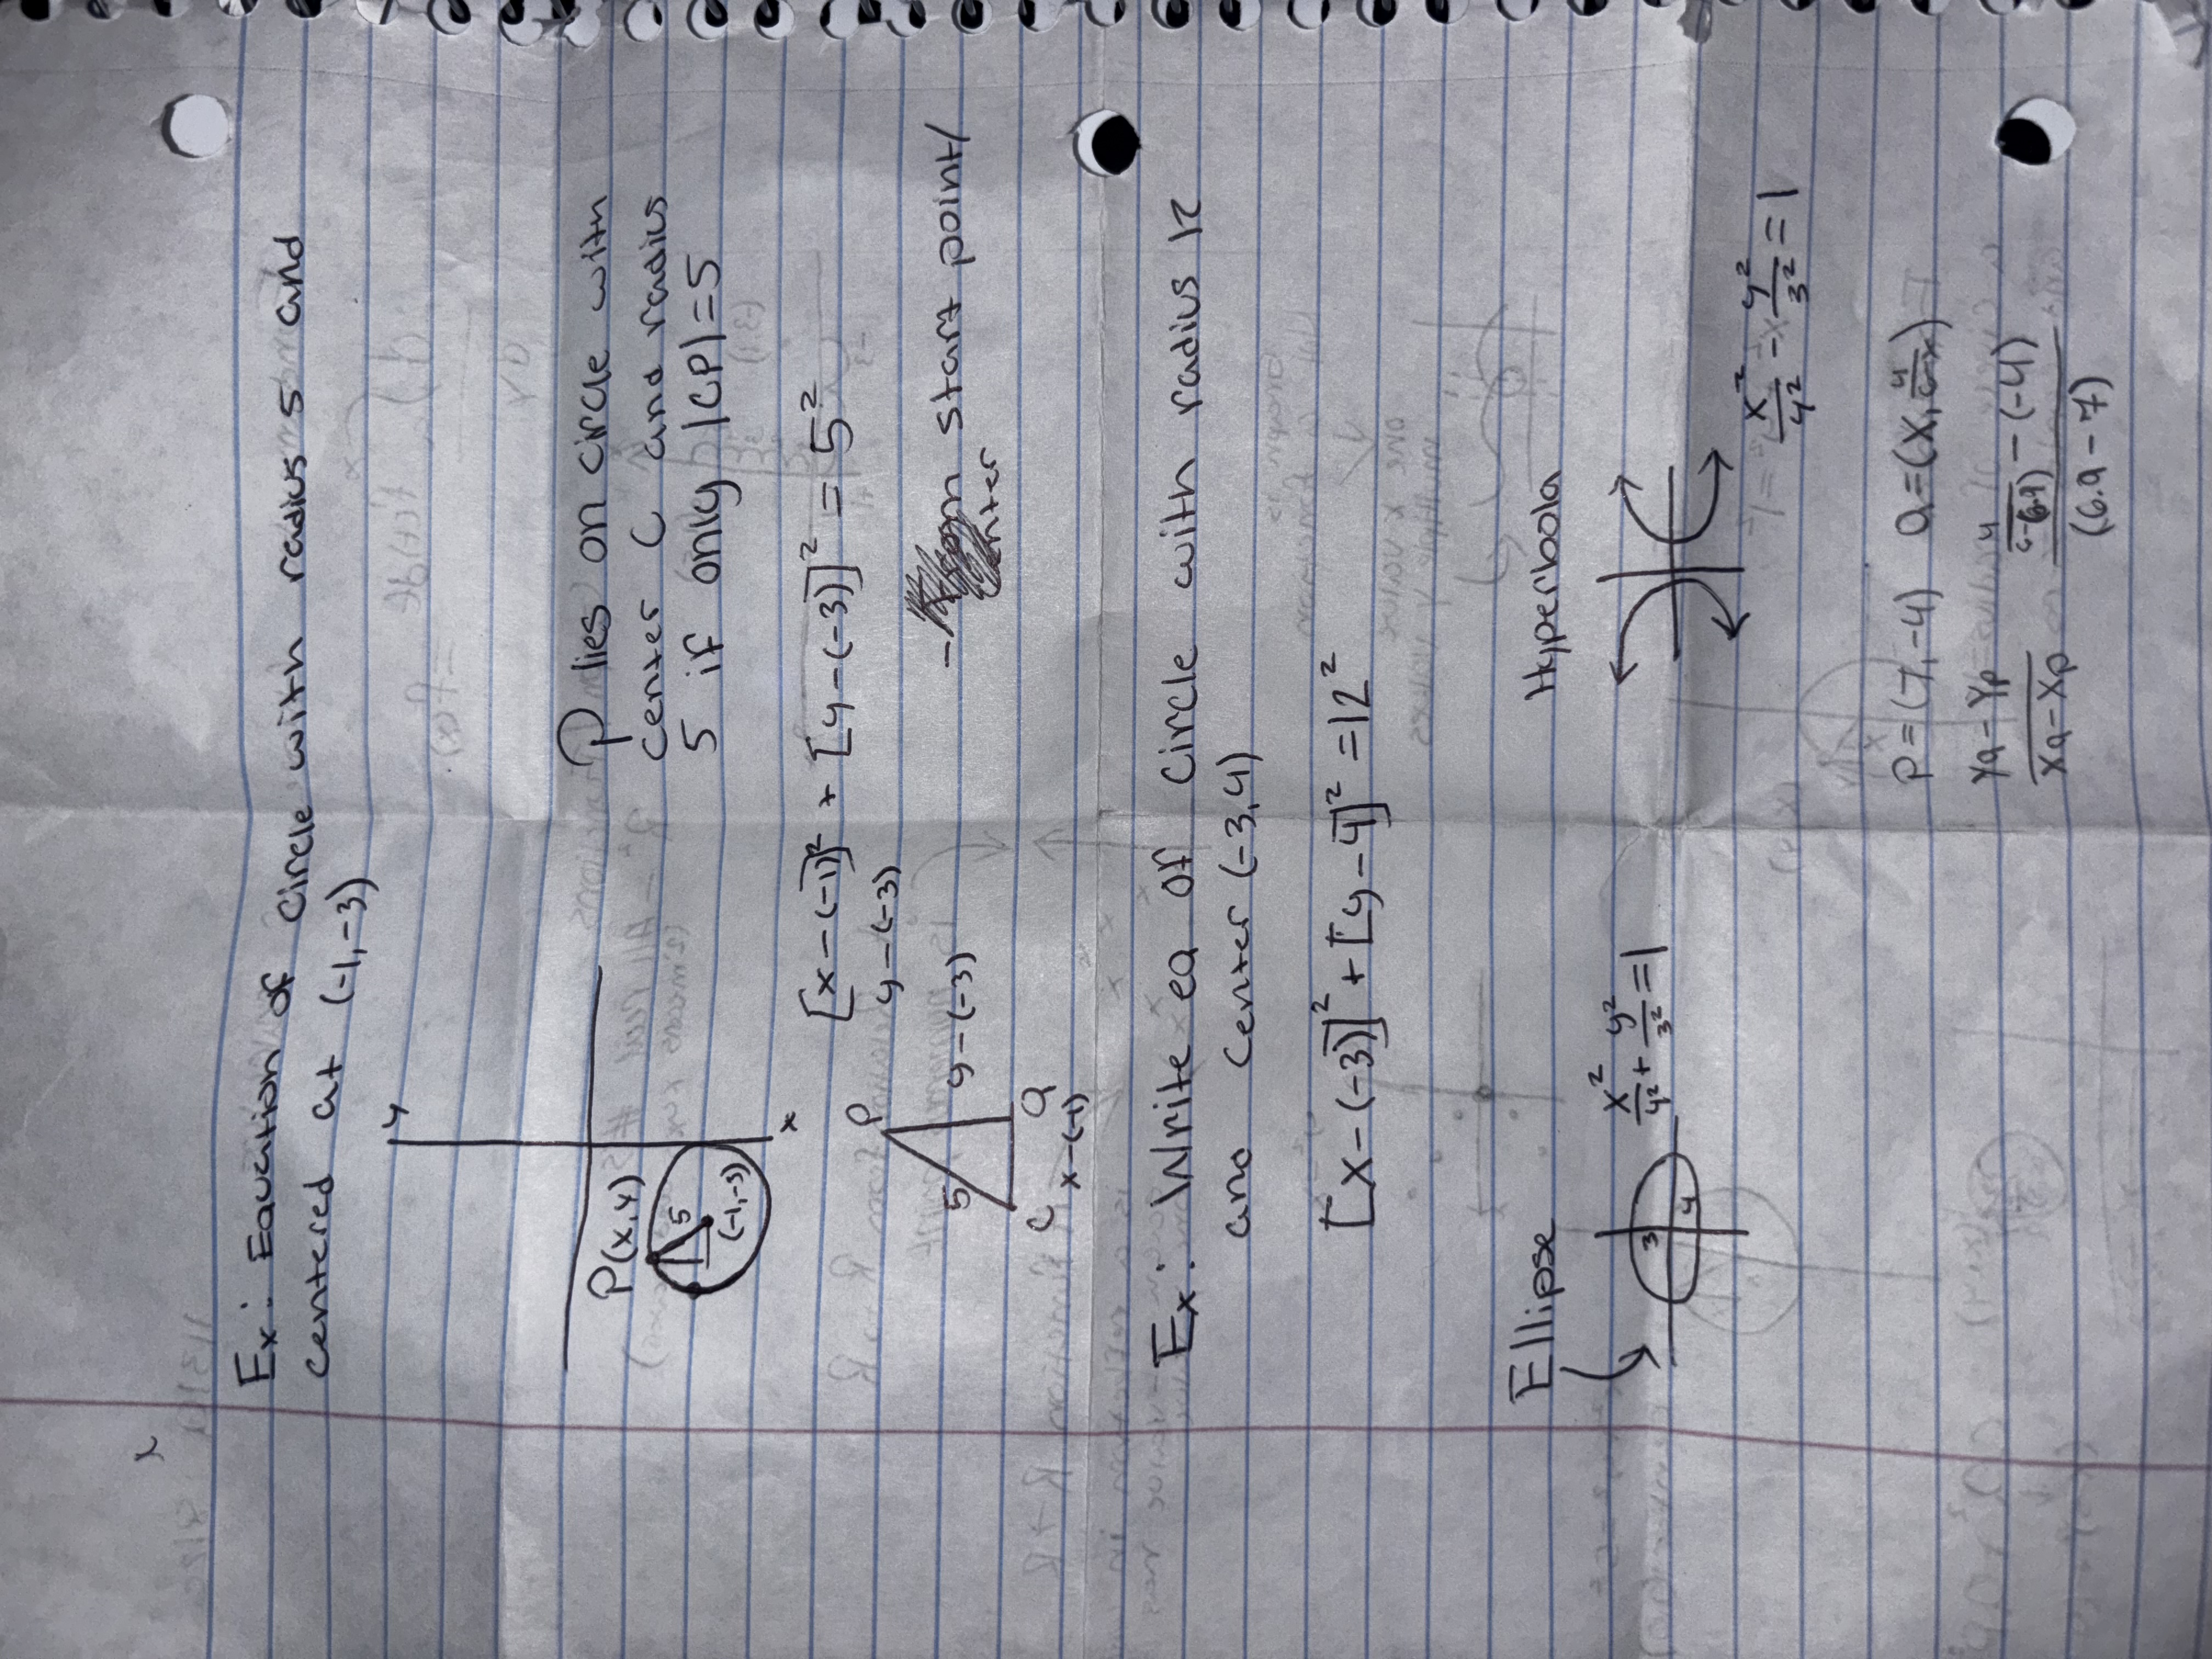 Ex: Equation of circle with radius 5 and
centered at (-1,-3)
y
x
P(x,y)
5
(-1,-3)
P lies on circle with
center C and radius
5 if only |CP|=5
[x-(-1)]² + [y-(-3)]² = 5²
y-(-3)
P
5
y-(-3)
C
Q
x-(-1)
- start point/
center
Ex: Write eq of circle with radius 12
and center (-3,4)
[x-(-3)]² + [y-4]² = 12²
Ellipse
3
4
x²/4² + y²/3² = 1
Hyperbola
x²/4² - y²/3² = 1
P=(7,-4) Q=(x, 4/6-x)
YQ-YP / XQ-XP
4/6-(6.9) -(-4) / (6.9-7)